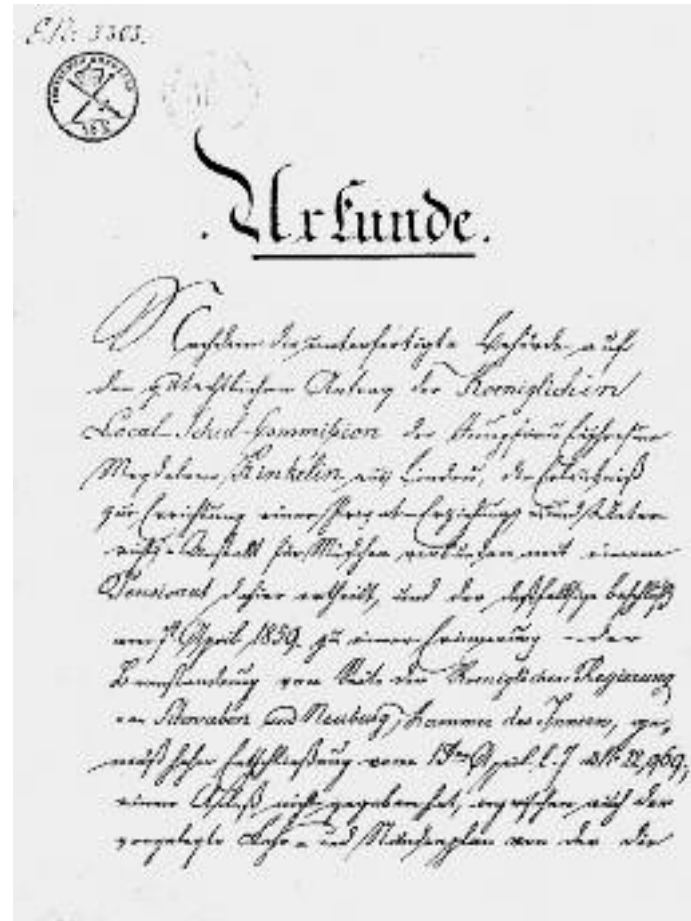 E.Nr. 3303.
Urkunde.
Nachdem die unterfertigte Behörde auf
den Antrag der Koeniglichen
Local-Schul-Commission der
Magdalena Kinkelin aus Lindau, die Erlaubniß
zur Errichtung einer Privat-Erziehungs- und
Anstalt für Mädchen verbunden mit einem
Pensionat dahier ertheilt, und der deßhallsige Beschluß
vom April 1859. zu einer Erinnerung oder
Beanstandung von Seite der Koeniglichen Regierung
von Schwaben und Neuburg, Kammer des Innern,
Entschließung vom April l. J. Nr. 22,969,
einen Anlaß nicht gegeben hat, auch der
vorgelegte Lehr- und Stundenplan von der die